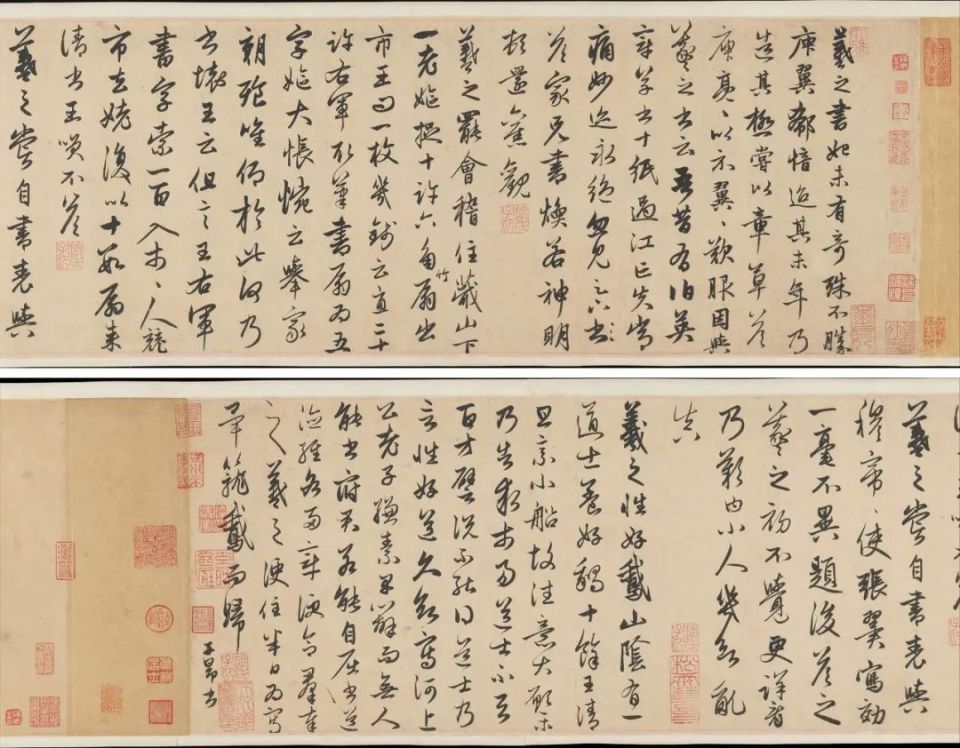 羲之書初未有奇殊不勝
庾翼郗愔迨其末年乃
造其極嘗以章草答
庾亮、以示翼、歎服因與
羲之書云吾昔有伯英
章草書十紙過江亡失常
痛妙迹永絕忽見足下書
答家兄書煥若神明
頓還舊觀
羲之罷會稽住蕺山下
一老嫗捉十許六角竹扇出
市王問一枚幾錢云直二十
許右軍取筆書扇為五
字嫗大悵惋云舉家
朝飡唯仰於此何乃
書壞王云但言王右軍
書字索一百入市、人競
市去姥復以十數扇來
請書王笑不答
羲之嘗自書表與
羲之嘗自書表與
穆帝、使張翼寫効
一毫不異題後答之
羲之初不覺更詳看
乃歎曰小人幾欲亂
真
羲之性好鵝山陰有一
道士養好鵝十餘王清
旦乘小船故往意大願樂
乃告求市易道士不與
百方譬說不能得道士乃
言性好道久欲寫河上
公老子縑素早辦而無人
能書府君若能自屈書道
德經各兩章便合羣奉
之羲之便住半日為寫
畢籠鵝而歸
子昂書